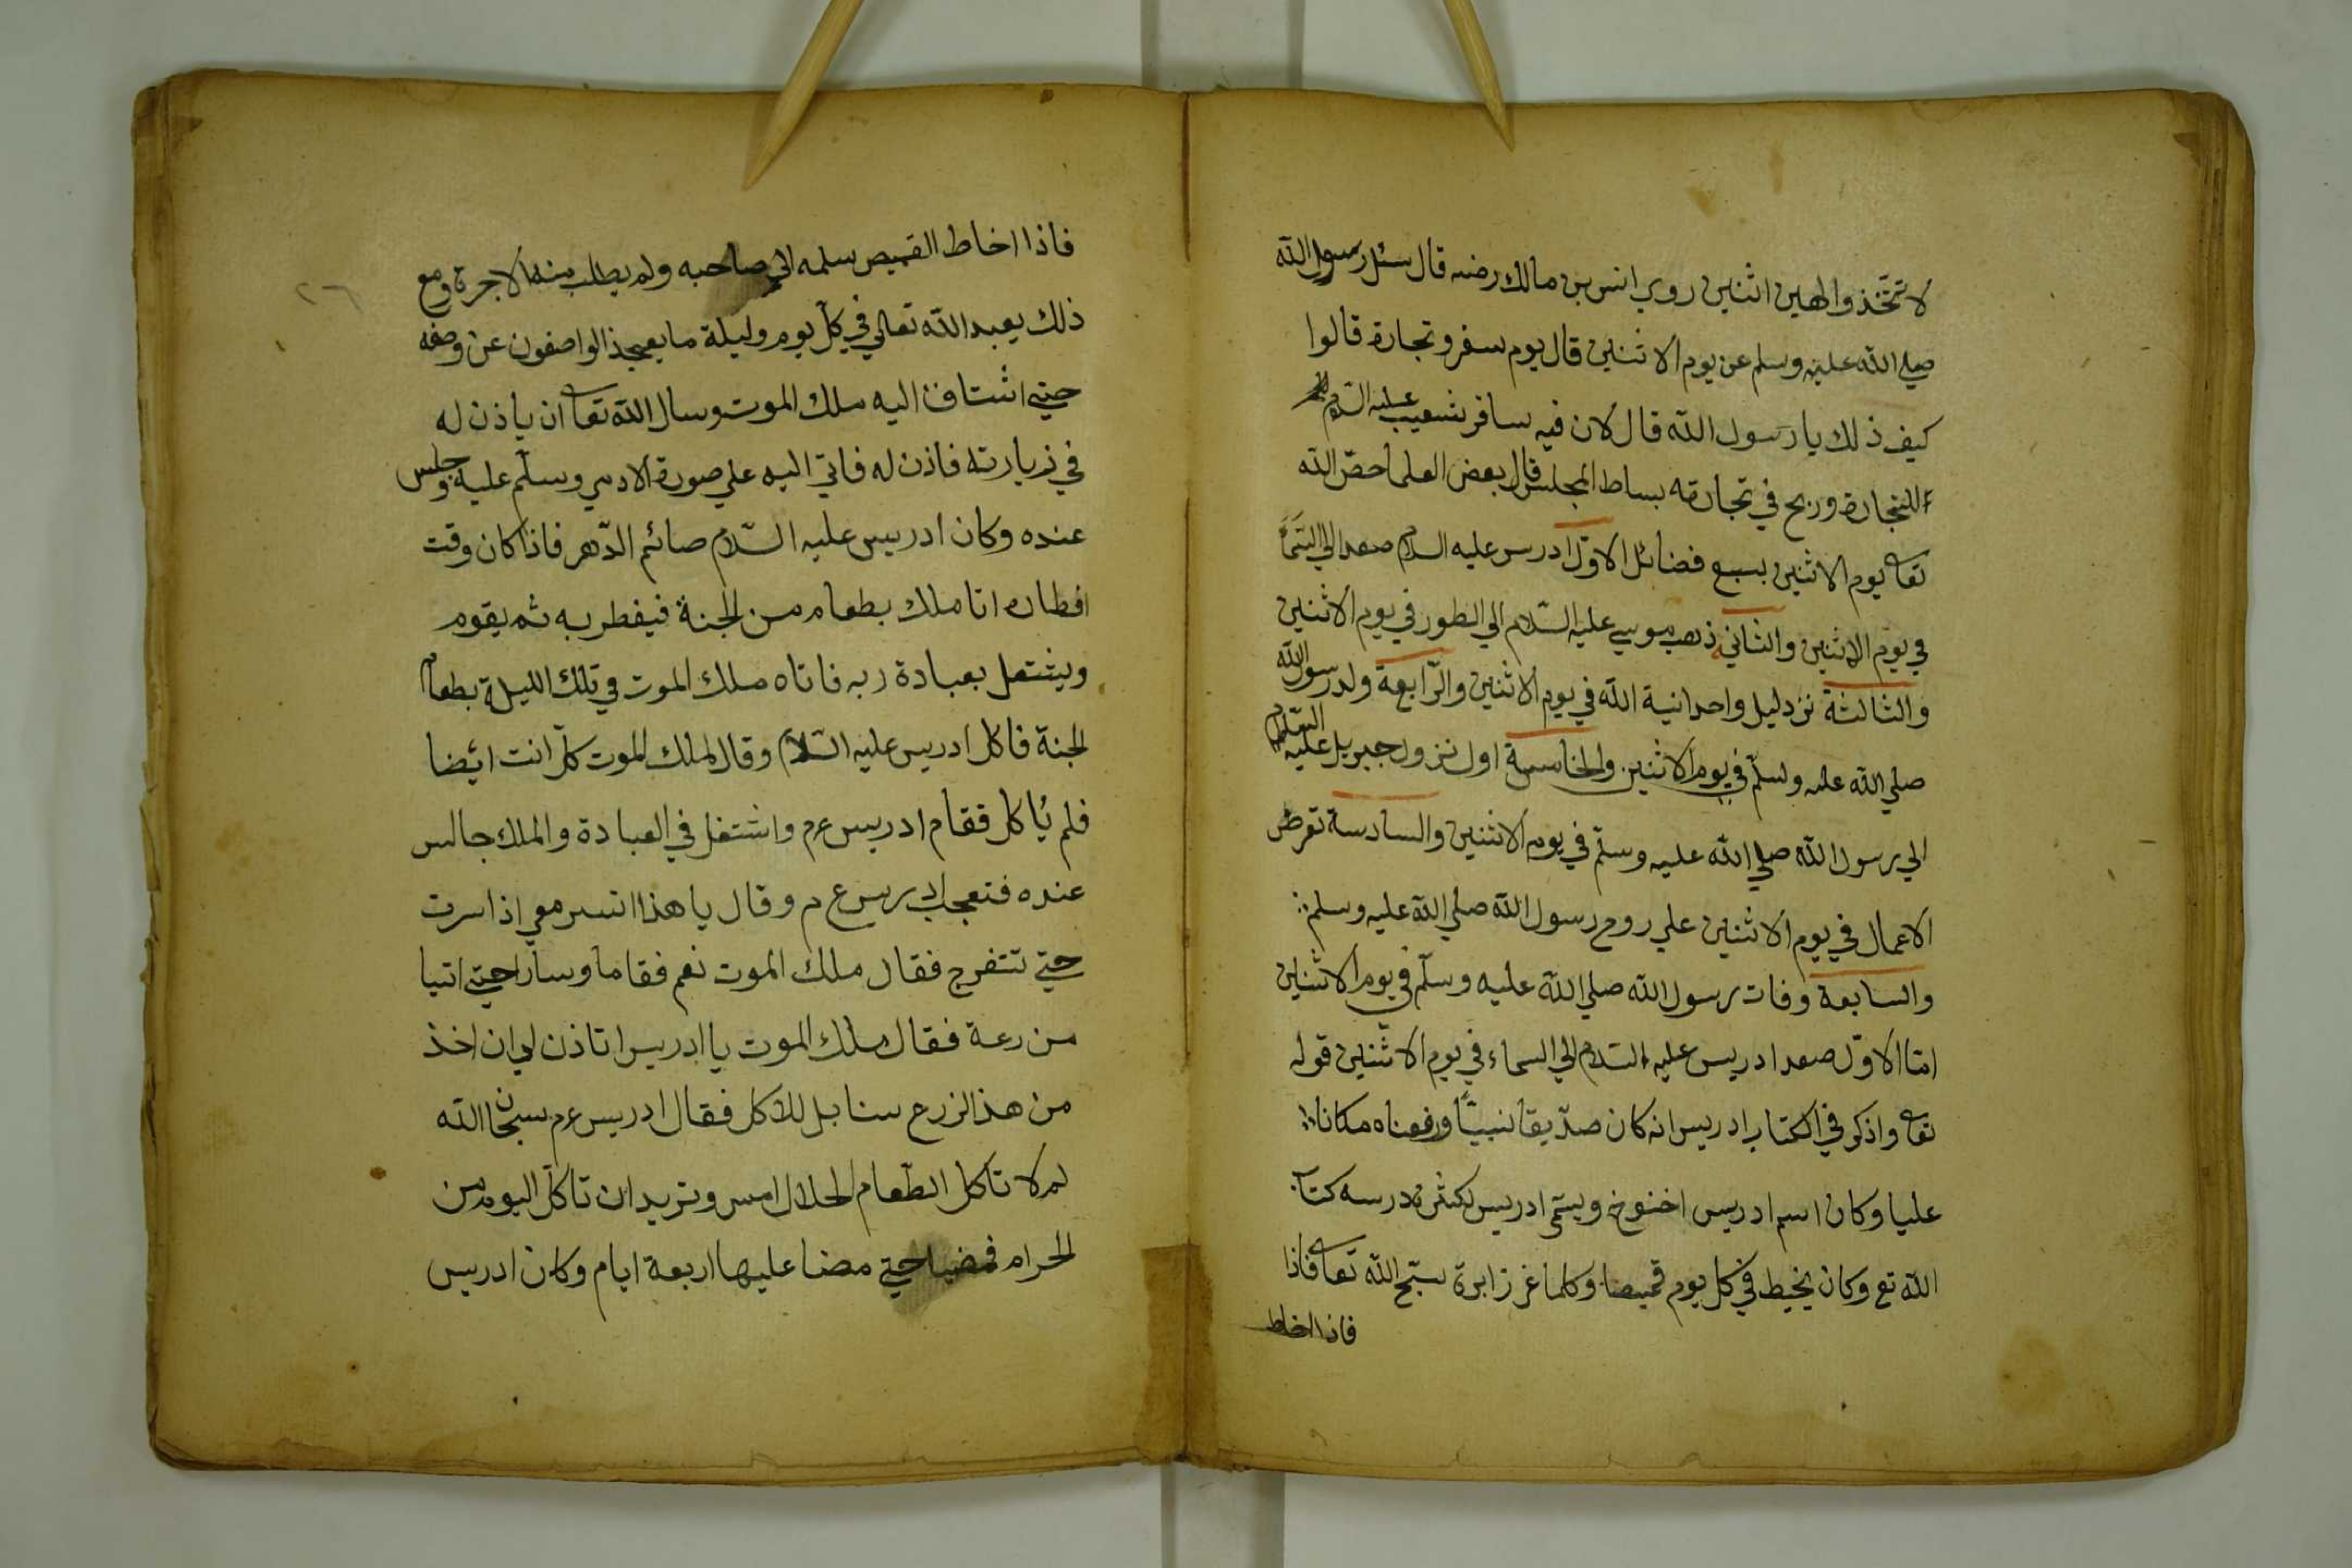 لا تتخذوا الهين اثنين روي انس بن مالك رضه قال سئل رسول الله
صلي الله عليه وسلم عن يوم الاثنين قال يوم سفر وتجارة قالوا
كيف ذلك يا رسول الله قال لان فيه سافر شعيب عليه السلام
للتجارة وربح في تجارته بساط المجلس قال بعض العلما خصّ الله
تعا يوم الاثنين بسبع فضائل الاوّل ادريس عليه السلام صعد الي السَّمَاء
في يوم الاثنين والثاني ذهب موسي عليه السّلام الي الطور في يوم الاثنين
والثالثة نزد ليل واحدانية الله في يوم الاثنين والرّابعة ولد رسول الله
صلي الله عليه وسلّم في يوم الاثنين والخامسة اول نزول جبريل عليه السّلام
الي رسول الله صلي الله عليه وسلّم في يوم الاثنين والسادسة تعرض
الاعمال في يوم الاثنين علي روح رسول الله صلي الله عليه وسلم
والسابعة وفات رسول الله صلي الله عليه وسلّم في يوم الاثنين
امّا الاوّل صعد ادريس عليه السّلام الي السماء في يوم الاثنين قوله
تعا واذكر في الكتاب ادريس انه كان صدّيقا نبيّاً ورفعناه مكانا
عليا وكان اسم ادريس اخنوخ ويسمّى ادريس لكثرة درسه كتاب
الله تع وكان يخيط في كل يوم قميصا وكلما غرز ابرة سبّح الله تعا فاذا
فاذا اخاط
٢٦
فاذا اخاط القميص سلمه الي صاحبه ولم يطلب منه الاجرة ومع
ذلك يعبد الله تعالي في كلّ يوم وليلة ما يعجذ الواصفون عن وصفه
حتي اشتاق اليه ملك الموت وسال الله تعا ان ياذن له
في زيارته فاذن له فاتي اليه علي صورة الادمي وسلّم عليه وجلس
عنده وكان ادريس عليه السّلام صائم الدّهر فاذا كان وقت
افطاره اتا ملك بطعام من الجنة فيفطر به ثم يقوم
ويشتغل بعبادة ربه فاتاه ملك الموت في تلك الليلة بطعام
الجنة فاكل ادريس عليه السّلام وقال لملك الموت كلّ انت ايضا
فلم يُاكل فقام ادريس ع م واشتغل في العبادة والملك جالس
عنده فتعجب ادريس ع م وقال يا هذا اتسر معي اذا سرت
حتي تتفرج فقال ملك الموت نعم فقاما وسارا حتي اتيا
من رعة فقال ملك الموت يا ادريس اتاذن لي ان اخذ
من هذ الزرع سنابل للاكل فقال ادريس ع م سبحان الله
لم لا تاكل الطّعام الحلال امس وتريد ان تاكلّ اليوم من
الحرام فمضيا حتي مضا عليها اربعة ايام وكان ادريس